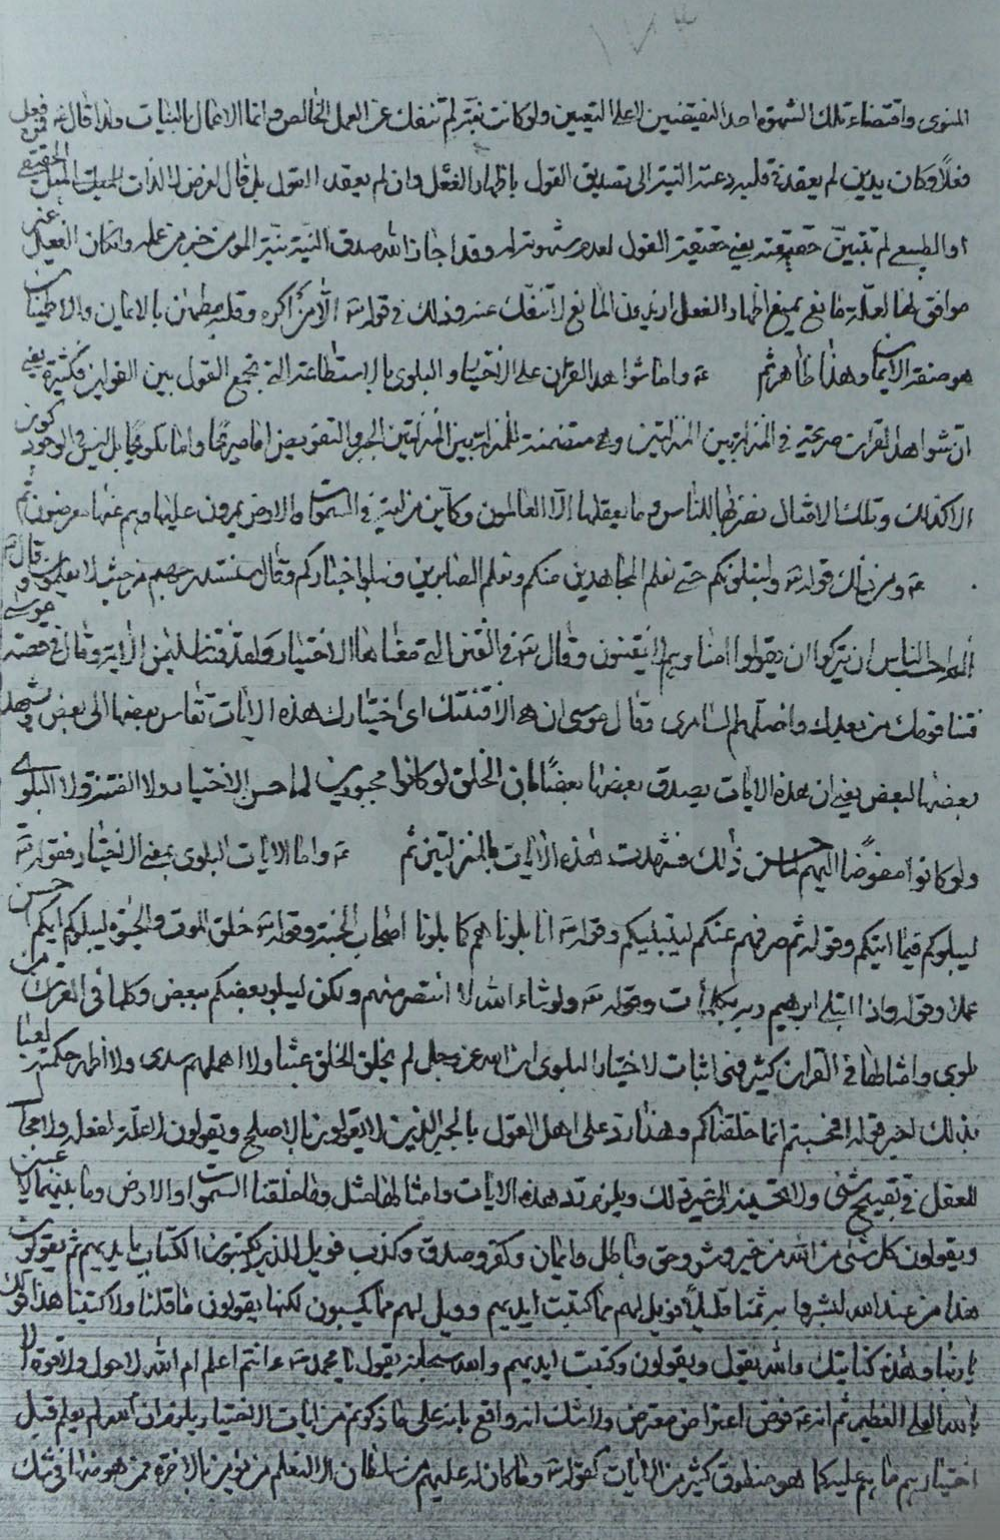 المنوى واقتضاء تلك الشهوة احد النقيضين لا على التعيين ولو كانت نية لم تنفك عن العمل الخالص وانما الاعمال بالنيات ولذا قال ع فمن فعل
فعلا وكان بدين لم يعقد قلبه دعته النية الى تصديق القول باظهار الفعل وان لم يعقد القول بل قال لعرض لا لذات الميل الحقيقى
او الطبيعى لم تتبين حقيقته يعنى حقيقة القول لعدم شهوته له وقد اجاز الله صدق النية نية المومن خير من عمله وان كان الفعل غير
موافق لها لعلة مانع يمنع اظهار الفعل اذ بدون المانع لا تنفك عنه وذلك فى قوله تع الا من اكره وقلبه مطمئن بالايمان والاطمينان
هو صفة الايمان وهذا ظاهر ثم ع واما شواهد القران على الاختيار والبلوى بالاستطاعة التى تجمع القول بين القولين فكثيرة يعنى
ان شواهد القران صريحة فى المنزلة بين المنزلتين وهى متضمنة للمنزلة بين المنزلتين الجبر والتفويض اما صريحا واما تلويحا بل ليس فى الوجود كون
الا كذلك وتلك الامثال نضربها للناس وما يعقلها الا العالمون وكاين من اية فى السموات والارض يمرون عليها وهم عنها معرضون ثم
ع ومن ذلك قوله تع ولنبلونكم حتى نعلم المجاهدين منكم ونعلم الصابرين ونبلوا اخباركم وقال سنستدرجهم من حيث لا يعلمون وقال تع
الم احسب الناس ان يتركوا ان يقولوا امنا وهم لا يفتنون وقال تع فى الفتن التى معناها الاختيار ولقد فتنا سليمن الاية وقال فى قصة موسى
فتنا قومك من بعدك واضلهم السامرى وقال موسى ان هى الا فتنتك اى اختيارك هذه الايات تقاس بعضها الى بعض ويشهد
بعضها لبعض يعنى ان هذه الايات يصدق بعضها بعضا بان الخلق لو كانوا مجبورين لما حسن الاختيار ولا الفتنة ولا البلوى
ولو كانوا مفوضا اليهم لما حسن ذلك فشهدت هذه الايات بالمنزلتين ثم ع واما الايات البلوى بمعنى الاختيار فقوله تع
ليبلوكم فيما اتيكم وقوله ثم صرفهم عنكم ليبتليكم وقوله تع انا بلوناهم كما بلونا اصحاب الجنة وقوله تع خلق الموت والحيوة ليبلوكم ايكم احسن
عملا وقوله واذ ابتلى ابرهيم ربه بكلمات وقوله تع ولو شاء الله لا انتصر منهم ولكن ليبلو بعضكم ببعض وكلما فى القران من
بلوى وامثالها فى القران كثير فهى اثبات الاختيار البلوى ان الله عز وجل لم يخلق الخلق عبثا ولا اهملهم سدى ولا اظهر حكمته لعبا
بذلك اخبر قوله افحسبتم انما خلقناكم وهذا رد على اهل القول بالجبر الذين لا يقولون بالاصلح ويقولون لا علة لفعله ولا مجال
للعقل فى تقبيح شئ ولا تحسينه الى غير ذلك ويلزم رد هذه الايات وامثالها مثل وما خلقنا السموات والارض وما بينهما لاعبين
ويقولون كل شئ من الله من خير وشر وحق وباطل وايمان وكفر وصدق وكذب فويل للذين يكتبون الكتاب بايديهم ثم يقولون
هذا من عند الله ليشتروا به ثمنا قليلا فويل لهم مما كتبت ايديهم وويل لهم مما يكسبون لكنها يقولون ما قلنا ولا كتبنا هذا قولك
يا ربنا وهذه كتابتك والله يقول ويقولون وكتبت ايديهم والله سبحانه يقول يا محمد ءانتم اعلم ام الله لا حول ولا قوة الا
بالله العلى العظيم ثم انه ع فرض اعتراض معترض ولا شك انه واقع بانه على ما ذكرتم من ايات الاختيار يلزم ان الله لم يعلم قبل
اختيارهم ما هم عليه كما هو منطوق كثير من الايات كقوله تع وما كان له عليهم من سلطان الا لنعلم من يومن بالاخرة ممن هو منها فى شك